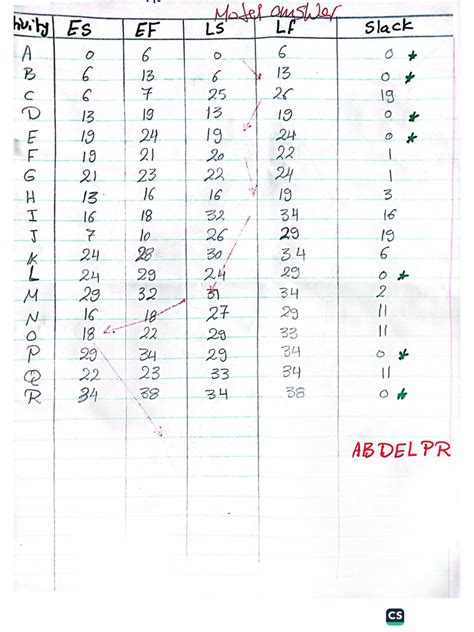 Model answer
hivity ES EF LS LF Slack
A 0 6 0 6 0 *
B 6 13 6 13 0 *
C 6 7 25 26 19
D 13 19 13 19 0 *
E 19 24 19 24 0 *
F 19 21 20 22 1
G 21 23 22 24 1
H 13 16 16 19 3
I 16 18 32 34 16
J 7 10 26 29 19
K 24 28 30 34 6
L 24 29 24 29 0 *
M 29 32 31 34 2
N 16 18 27 29 11
O 18 22 29 33 11
P 29 34 29 34 0 *
Q 22 23 33 34 11
R 34 38 34 38 0 *
ABDELPR
CS